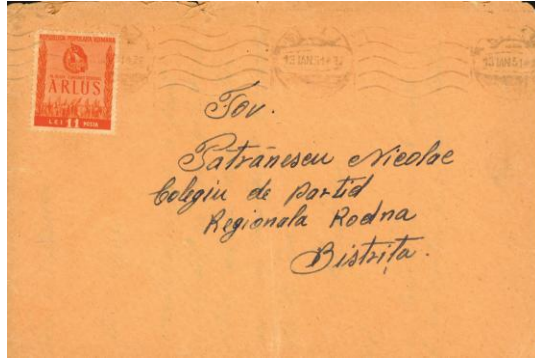 REPUBLICA POPULARA ROMANA
ARLUS
LEI 11 POSTA
13 IAN 51
Tov.
Patrănescu Nicolae
Colegiu de partid
Regionala Rodna
Bistrița.